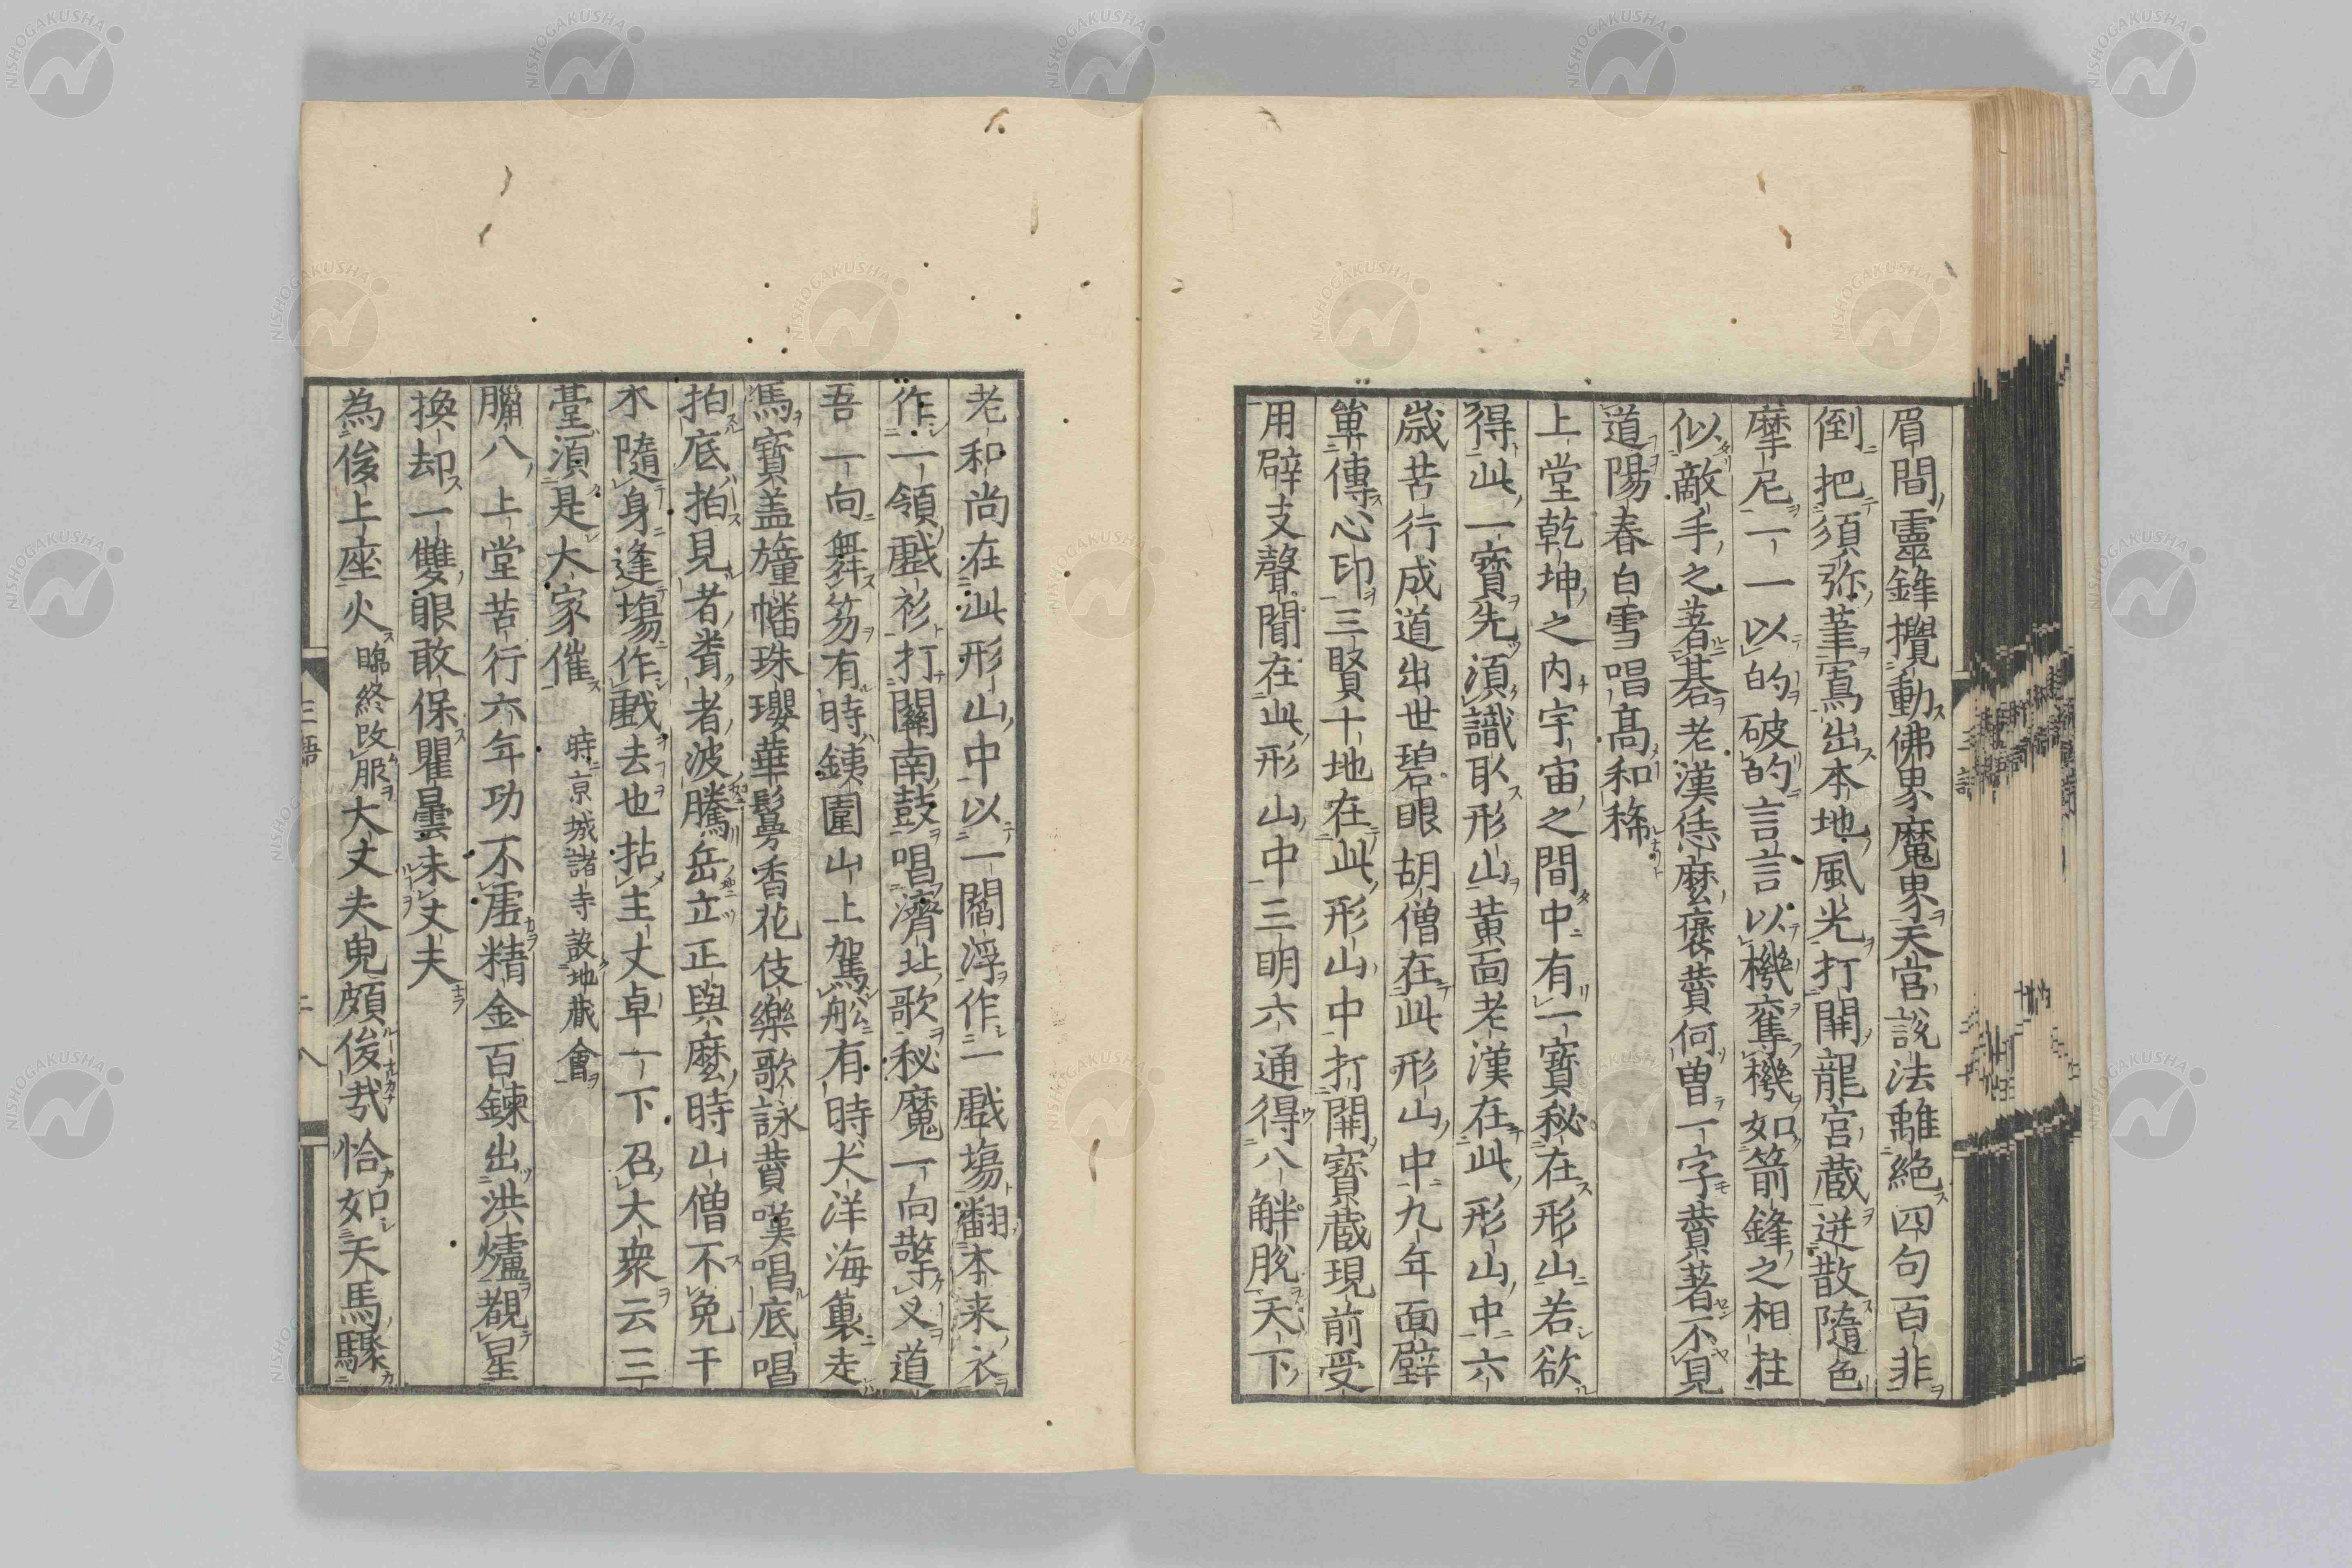 眉間靈鋒攪動佛界魔界天宮說法離絕四句百非
倒把須弥筆寫出本地風光打開龍宮藏迸散隨色
摩尼一一以的破的言言以機奪機如箭鋒之相拄
似敵手之著碁老漢恁麼褒賛何曽一字賛著不見
道陽春白雪唱高和稀
上堂乾坤之内宇宙之間中有一寶秘在形山若欲
得此一寶先須識取形山黃面老漢在此形山中六
歲苦行成道出世碧眼胡僧在此形山中九年面壁
單傳心印三賢十地在此形山中打開寶藏現前受
用辟支聲聞在此形山中三明六通得八解脫天下
老和尚在此形山中以一閻浮作一戲場翻本来衣
作一領戲衫打關南皷唱濟北歌秘魔一向擎叉道
吾一向舞笏有時鐵圍山上駕舩有時大洋海裏走
馬寶盖旛幡珠瓔華鬘香花伎樂歌詠賛嘆唱底唱
拍底拍見者聾者波騰岳立正與麼時山僧不免干
木隨身逢場作戲去也拈主丈卓一下召大衆云三
臺須是大家催 時京城諸寺設地藏會
臘八上堂苦行六年功不虛精金百鍊出洪爐覩星
換却一雙眼敢保瞿曇未丈夫
為俊上座火 臨終改服 大丈夫皃頗俊哉恰如天馬驟